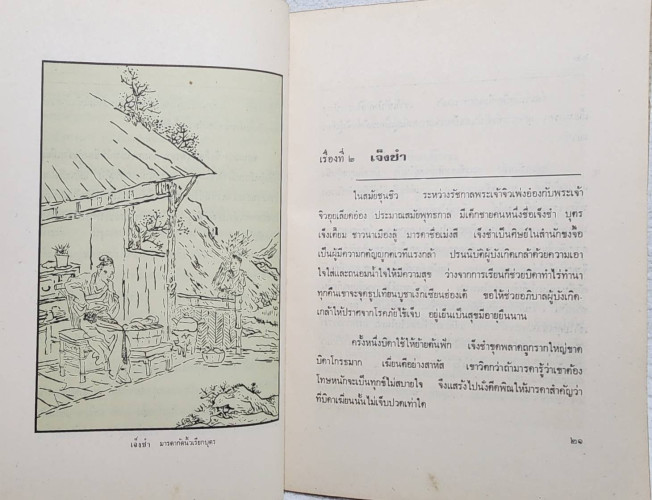 เจ็งชำ มารดากัดนิ้วเรียกบุตร
เรื่องที่ ๒ เจ็งชำ
ในสมัยชุนชิว ระหว่างรัชกาลพระเจ้าจิวเพ่งอ๋องกับพระเจ้า
จิวอุยเลียดอ๋อง ประมาณสมัยพุทธกาล มีเด็กชายคนหนึ่งชื่อเจ็งชำ บุตร
เจ็งเตียม ชาวนาเมืองลู้ มารดาชื่อเม่งสี เจ็งชำเป็นศิษย์ในสำนักขงจื๊อ
เป็นผู้มีความกตัญญูกตเวทีแรงกล้า ปรนนิบัติผู้บังเกิดเกล้าด้วยความเอา
ใจใส่และถนอมน้ำใจให้มีความสุข ว่างจากการเรียนก็ช่วยบิดาทำไร่ทำนา
ทุกคืนเขาจะจุดธูปเทียนบูชาเง็กเซียนฮ่องเต้ ขอให้ช่วยอภิบาลผู้บังเกิด-
เกล้าให้ปราศจากโรคภัยไข้เจ็บ อยู่เย็นเป็นสุขมีอายุยืนนาน
ครั้งหนึ่งบิดาใช้ให้ย้ายต้นฟัก เจ็งชำขุดพลาดถูกรากใหญ่ขาด
บิดาโกรธมาก เฆี่ยนตีอย่างสาหัส เขาวิตกว่าถ้ามารดารู้ว่าเขาต้อง
โทษหนักจะเป็นทุกข์ไม่สบายใจ จึงแสร้งไปนั่งดีดพิณให้มารดาสำคัญว่า
ที่บิดาเฆี่ยนนั้นไม่เจ็บปวดเท่าใด
๒๑